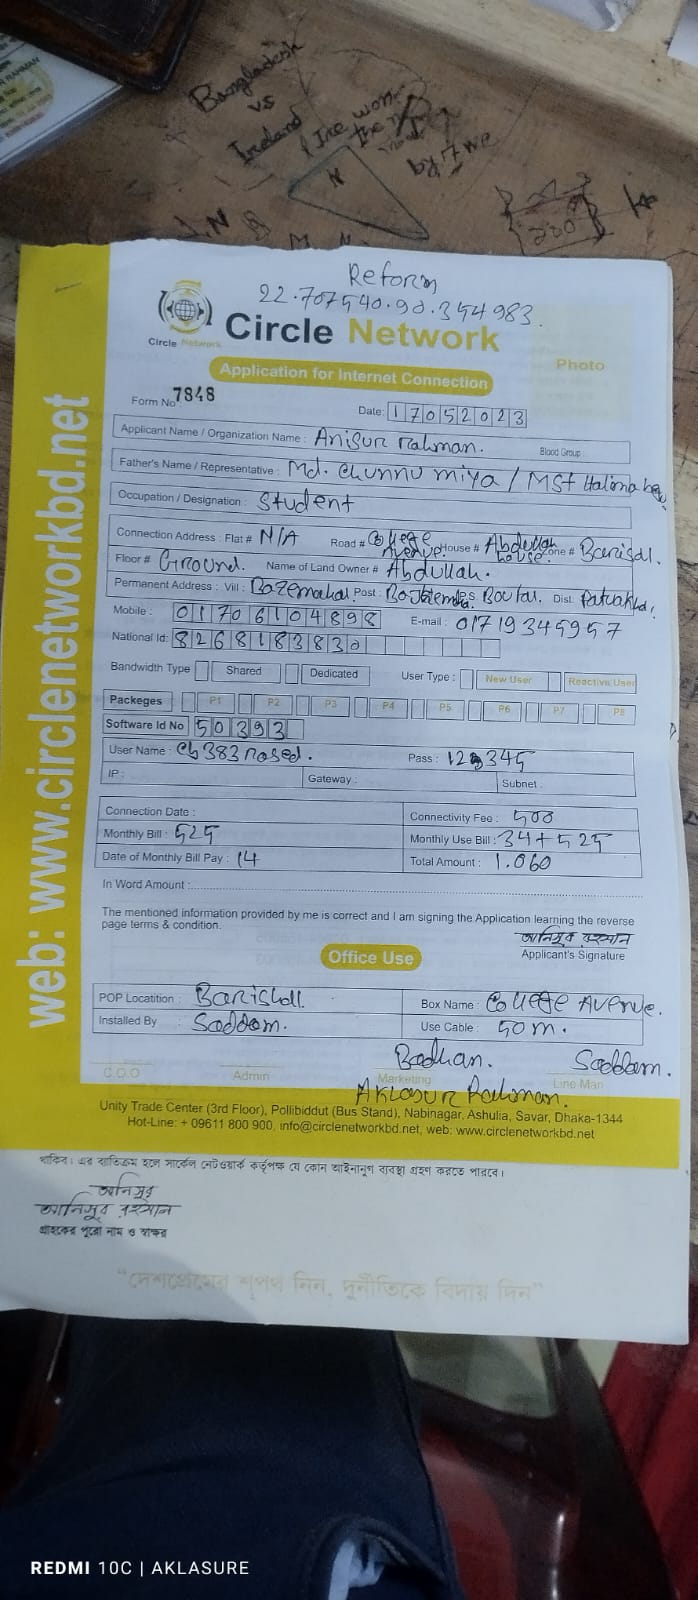 Bangladesh
vs
Ireland
Ire won
the
N
220
Reform
22.707540.90.354983.
Circle Network
Circle Network
Photo
Application for Internet Connection
Form No 7848
Date: 17052023
Applicant Name / Organization Name : Anisur rahman. Blood Group :
Father's Name / Representative : Md. Chunnu miya / MST Halima
Occupation / Designation : Student
Connection Address : Flat # N/A Road # College Avenue. House # Abdullah house. Zone # Barisal.
Floor # Ground. Name of Land Owner # Abdullah.
Permanent Address : Vill : Post : P.S Dist.
Mobile : 01706104898 E-mail : 01719345957
National Id: 8268183830
Bandwidth Type Shared Dedicated User Type : New User Reactive User
Packeges P1 P2 P3 P4 P5 P6 P7 P8
Software Id No 50393
User Name : Pass :
IP : Gateway : Subnet :
Connection Date : Connectivity Fee : 500
Monthly Bill : 525 Monthly Use Bill : 34+525
Date of Monthly Bill Pay : 14 Total Amount : 1.060
In Word Amount :
The mentioned information provided by me is correct and I am signing the Application learning the reverse
page terms & condition.
আনিসুর রহমান
Applicant's Signature
Office Use
POP Locatition : Box Name : College Avenue.
Installed By : Saddam. Use Cable : 50m.
Badhan. Saddam.
C.O.O Admin Marketing Line Man
Aklasur Rahman.
Unity Trade Center (3rd Floor), Pollibiddut (Bus Stand), Nabinagar, Ashulia, Savar, Dhaka-1344
Hot-Line: + 09611 800 900, info@circlenetworkbd.net, web: www.circlenetworkbd.net
web: www.circlenetworkbd.net
থাকিব। এর ব্যতিক্রম হলে সার্কেল নেটওয়ার্ক কর্তৃপক্ষ যে কোন আইনানুগ ব্যবস্থা গ্রহণ করতে পারবে।
আনিসুর
আনিসুর রহমান
গ্রাহকের পুরো নাম ও স্বাক্ষর
"দেশপ্রেমের শপথ নিন, দুর্নীতিকে বিদায় দিন"
REDMI 10C | AKLASURE